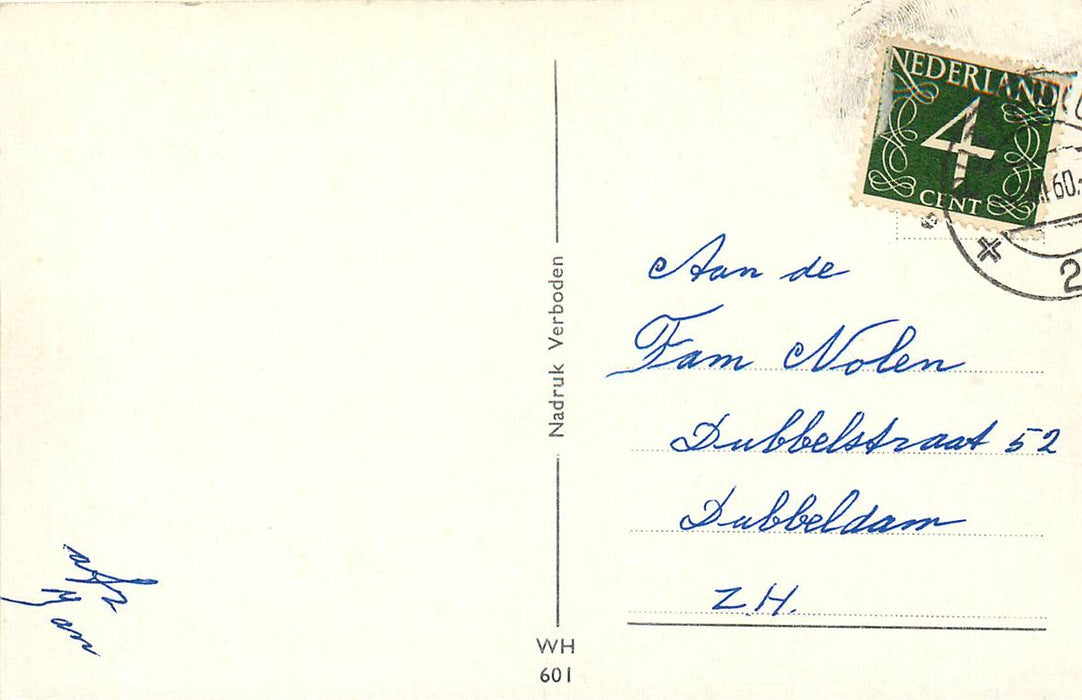 NEDERLAND
4
CENT
60.
2
Aan de
Fam Nolen
Dubbelstraat 52
Dubbeldam
Z.H.
Nadruk Verboden
WH
601
afz
Jan